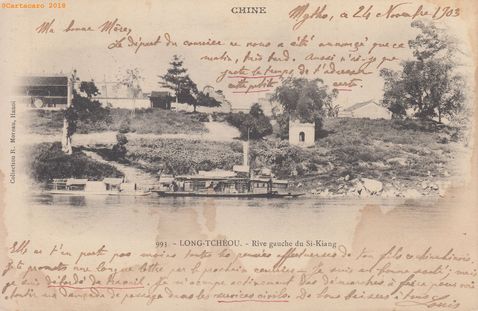 ©Cartacaro 2018
CHINE
Mytho, le 24 Novembre 1903
Ma bonne Mère,
Le départ du courrier ne nous a été annoncé que ce
matin, très tard. Aussi n'ai-je que
juste le temps de t'adresser
cette petite carte
Collection R. Moreau, Hanoï
993. - LONG-TCHÉOU. - Rive gauche du Si-Kiang
Elle ne t'en porte pas moins toutes les pensées affectueuses de ton fils
Je te promets une longue lettre par le prochain courrier. Je suis en bonne santé, mais
je suis débordé de travail. Je m'occupe activement des démarches à faire pour
ma demande de passage dans les services civils. De bons baisers à tous
Louis